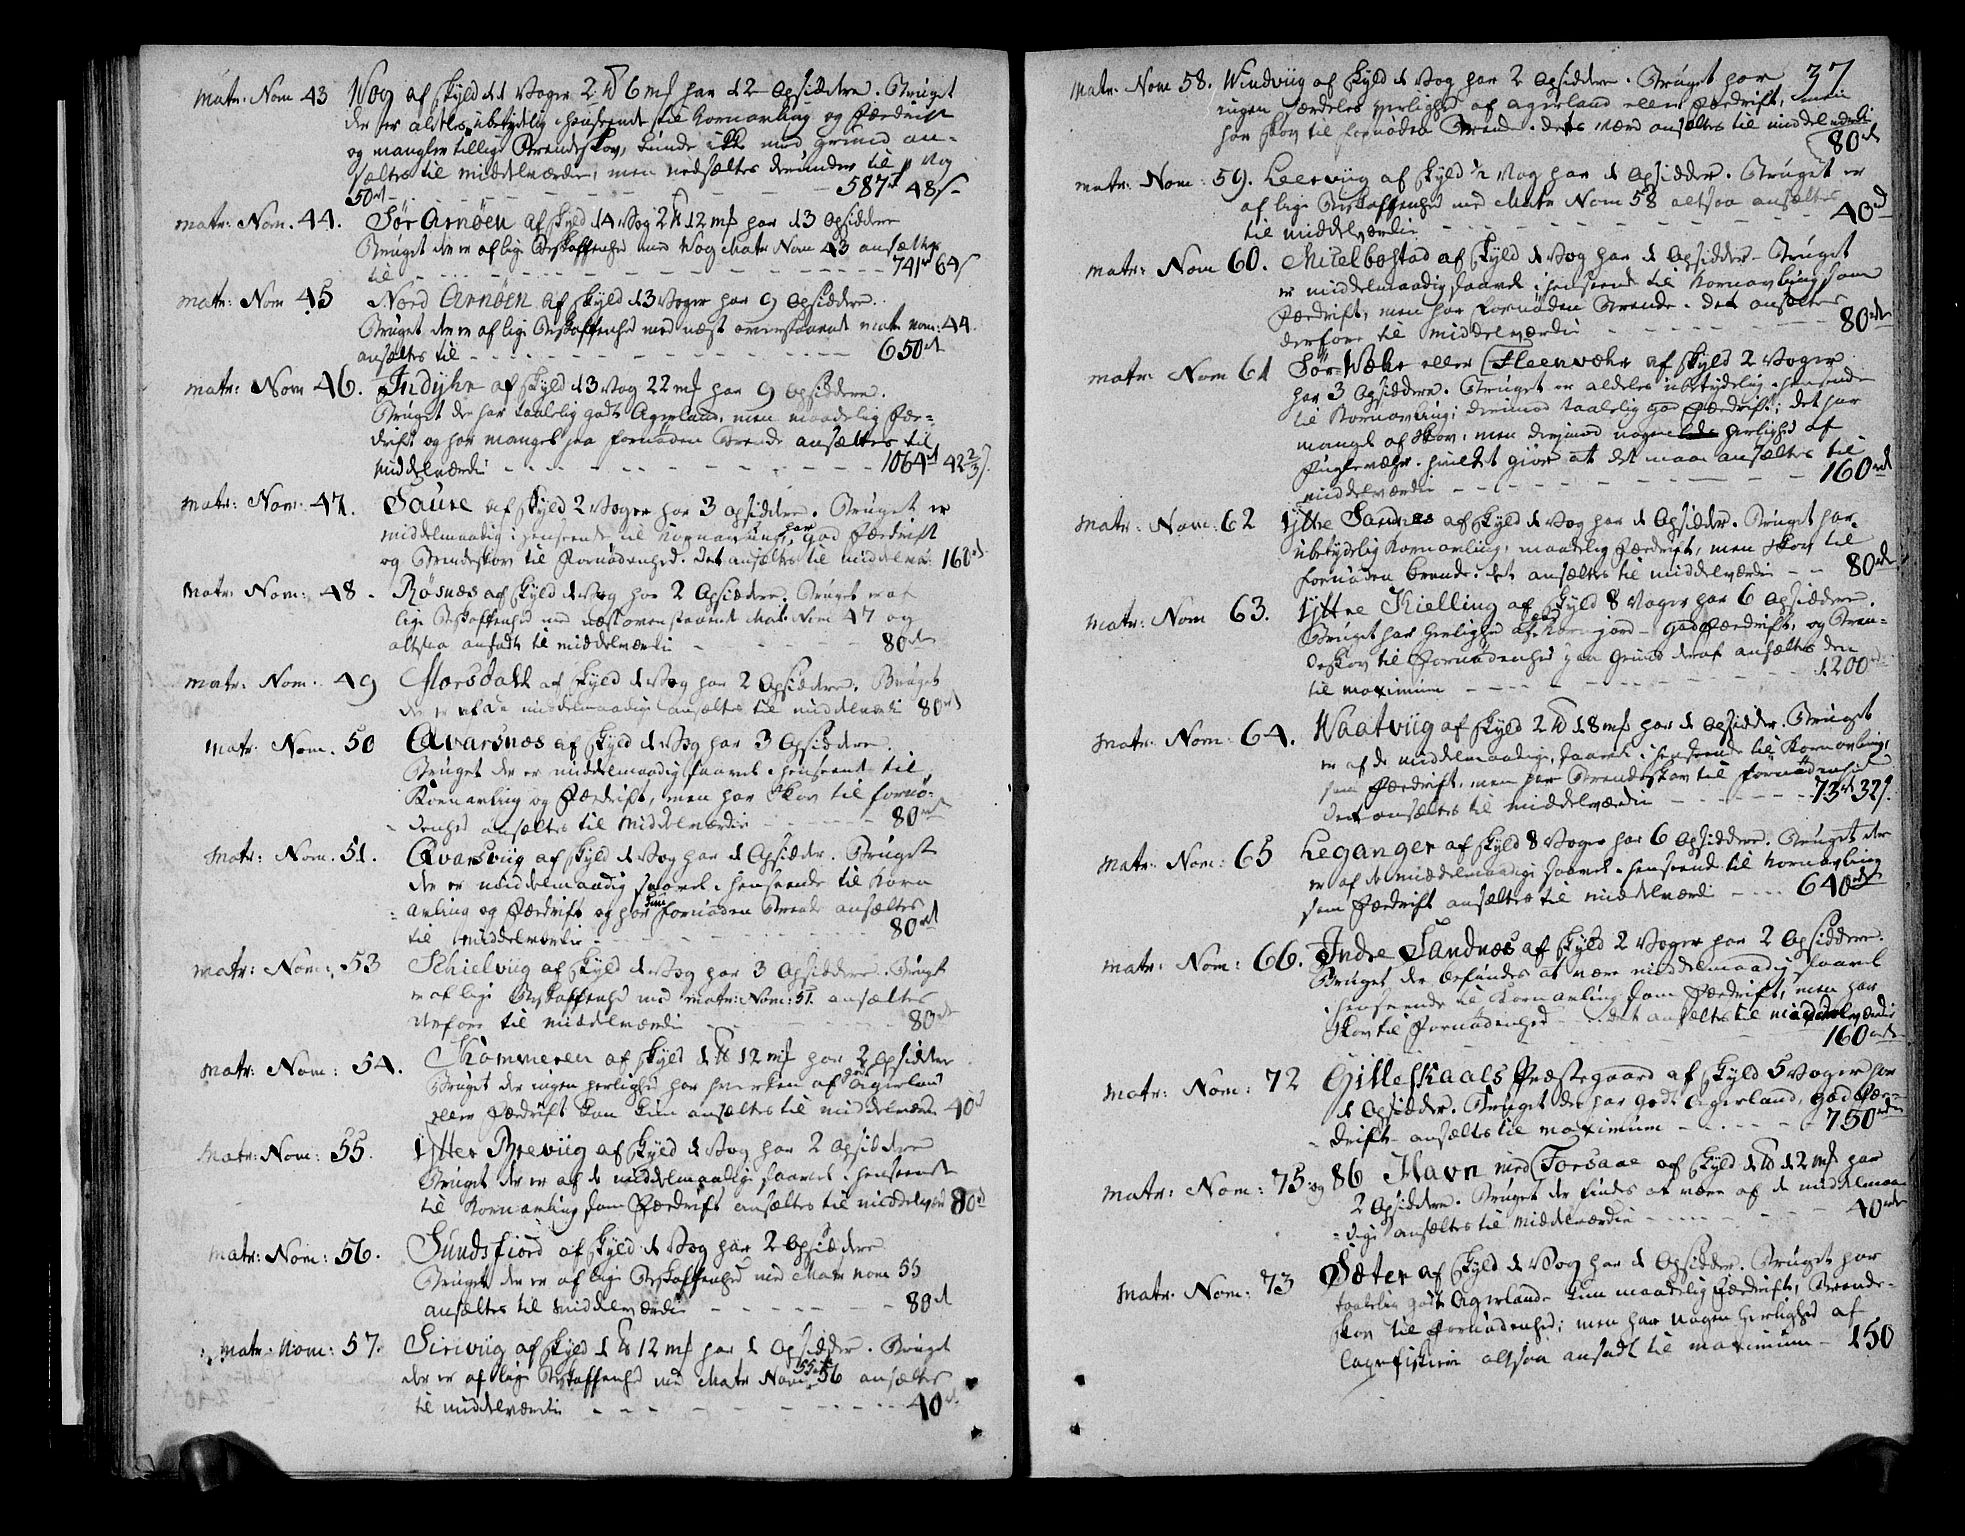 matr: Nom 43 Wog af Skyld 11 Voger 2 ℔ 6 mk har 12 Opsiddere. Bruget
der er aldeles ubetydelig i henseende til Kornavling og Fædrift
og mangler tillige Brændeskov, kunde ikke med grund an-
sættes til middelværdie, men nedsættes derunder til pr Vog
50 rd - - - - 587 rd 48 s
matr: Nom. 44. Sør Arnøen af Skyld 14 Vog 2 ℔ 12 mk har 13 Opsiddere
Bruget der er af lige Beskaffenhed med Wog Matr Nom 43 ansættes
til - - - - 741 rd 64 s
matr: Nom 45 Nord Arnøen af Skyld 13 Voger har 9 Opsiddere.
Bruget der er af lige Beskaffenhed med næst ovenstaaende matr nom: 44.
ansættes til - - - - 650 rd
matr: Nom 46. Indyhr af Skyld 13 Vog 22 mk har 9 Opsiddere.
Bruget der har taalelig godt Agerland, men maadelig Fæ-
drift og har mangel paa fornøden Brænde ansættes til
Middelværdie - - - - 1064 rd 42 2/3 s.
matr: Nom. 47. Saure af Skyld 2 Voger har 3 Opsiddere. Bruget er
middelmaadig i henseende til Kornavling, har god Fædrift
og Brændeskov til Fornødenhed. Det ansættes til middelv: 160 rd
matr: Nom: 48. Røsnæs af Skyld 1 Vog har 2 Opsiddere. Bruget er af
lige Beskaffenhed med næstovenstaaende Mat. Nom 47 og
altsaa ansadt til middelværdie - - - 80 rd
matr: Nom. 49 Morsdahl af Skyld 1 Vog har 2 Opsiddere. Bruget
der er af de middelmaadige ansættes til middelværdi 80 rd
matr. Nom. 50 Qvarsnæs af Skyld 1 Vog har 3 Opsiddere.
Bruget der er middelmaadig saavel i henseende til
Kornavling og Fædrift, men har Skov til fornø-
denhed ansættes til Middelværdie - - - 80 rd
matr: Nom. 51. Qvarsviig af Skyld 1 Vog har 1 Opsidder. Bruget
der er middelmaadig saavel i henseende til Korn
avling og Fædrift og har kun fornøden Brænde ansættes
til Middelværdie - - - - 80 rd
matr: Nom: 53 Schielviig af Skyld 1 Vog har 3 Opsiddere. Bruget
er af lige Beskaffenhed med matr: Nom: 51. ansættes
derfore til middelværdie - - - 80 rd
matr: Nom: 54. Kammeren af Skyld 1 ℔ 12 mk har 2 Opsiddere
Bruget der ingen herlighed har hverken af godt Agerland
eller Fædrift kan kun ansættes til middelværdie 40 rd
Matr: Nom: 55. Ytter Breviig af Skyld 1 Vog har 2 Opsiddere
Bruget der er af de middelmaadige saavel i henseende
til Kornavling som Fædrift ansættes til middelværd 80 rd
matr: Nom: 56. Sundsfiord af Skyld 1 Vog har 2 Opsiddere
Bruget der er af lige Beskaffenhed med Matr nom 55
ansættes til middelværdie - - - - 80 rd
matr. Nom: 57. Siriviig af Skyld 1 ℔ 12 mk har 1 Opsidder. Bruget
der er af lige Beskaffenhed med Matr Nom 55 & 56 ansættes
til middelværdie - - - - 40 rd.
37
Matr: Nom 58. Windviig af Skyld 1 Vog har 2 Opsiddere. Bruget har
ingen særdeles herlighed af agerland eller Fædrift, men
har skov til fornøden Brænde. dets værd ansættes til middelværdi
80 rd
matr: Nom: 59. Leerviig af Skyld ½ Vog har 1 Opsidder. Bruget er
af lige Beskaffenhed med Matr Nom 58 altsaa ansættes
til middelværdie - - - - 40 rd
matr: Nom 60. Mitelbostad af Skyld 1 Vog har 1 Opsidder. Bruget
er middelmaadig saavel i henseende til Kornavling som
Fædrift, men har fornøden Brænde. det ansættes
derfore til middelværdie - - - - 80 rd
matr: Nom 61 Sør-Wæhr eller Fleenvæhr af Skyld 2 Voger
har 3 Opsiddere. Bruget er aldeles ubetydelig i henseende
til Kornavling; derimod taalelig god Fædrift; det har
mangel af Skov, men derimod nogen herlighed af
Fuglevæhr. hvilket giør at det maae ansættes til
middelværdie - - - - 160 rd
matr: Nom: 62 Ytre Sandnæs af Skyld 1 Vog har 1 Opsidder. Bruget har
ubetydelig Kornavling, maadelig Fædrift, men Skov til
fornøden brænde. det ansættes til middelværdie - - 80 rd
matr: Nom 63. Yttre Kielling af Skyld 8 Voger har 6 Opsiddere.
Bruget har herlighed af god Korn jord - god Fædrift, og Bræn-
deskov til Fornødenhed paa Grund deraf ansættes den
til maximum - - - - 1200 rd
matr: Nom: 64. Waatviig af Skyld 2 ℔ 18 mk har 1 Opsidder. Bruget
er af de middelmaadige, saavel i henseende til Kornavling,
som Fædrift, men har Brændeskov til Fornødenhed
Det ansættes til middelværdie - - - - 73 rd 32 s.
matr: Nom: 65 Leganger af Skyld 8 Voger har 6 Opsiddere. Bruget der
er af de middelmaadige saavel i henseende til Kornavling
som Fædrift ansættes til middelværdi - - - 640 rd
matr: Nom: 66. Indre Sandnæs af Skyld 2 Voger har 2 Opsiddere.
Bruget der befindes at være middelmaadig saavel
i henseende til Kornavling som Fædrift, men har
Skov til Fornødenhed - - det ansættes til middelværdie
160 rd
matr: Nom: 72 Gilleskaals Præstegaard af Skyld 5 Voger har
1 Opsidder. Bruget der har godt Agerland, god Fæ-
drift ansættes til maximum - - - - 750 rd
matr: Nom: 75 og 86 Havn med Forsaae af Skyld 1 ℔ 12 mk har
2 Opsiddere. Bruget der findes at være af de middelmaa-
dige ansættes til middelværdie - - - - 40 rd
matr: Nom: 73 Sæter af Skyld 1 Vog har 1 Opsidder. Bruget har
taalelig godt Agerlande kun maadelig Fædrift, Brænde-
skov til Fornødenhed; men har nogen herlighed af
Laxefiskerie altsaa ansadt til maximum - 150